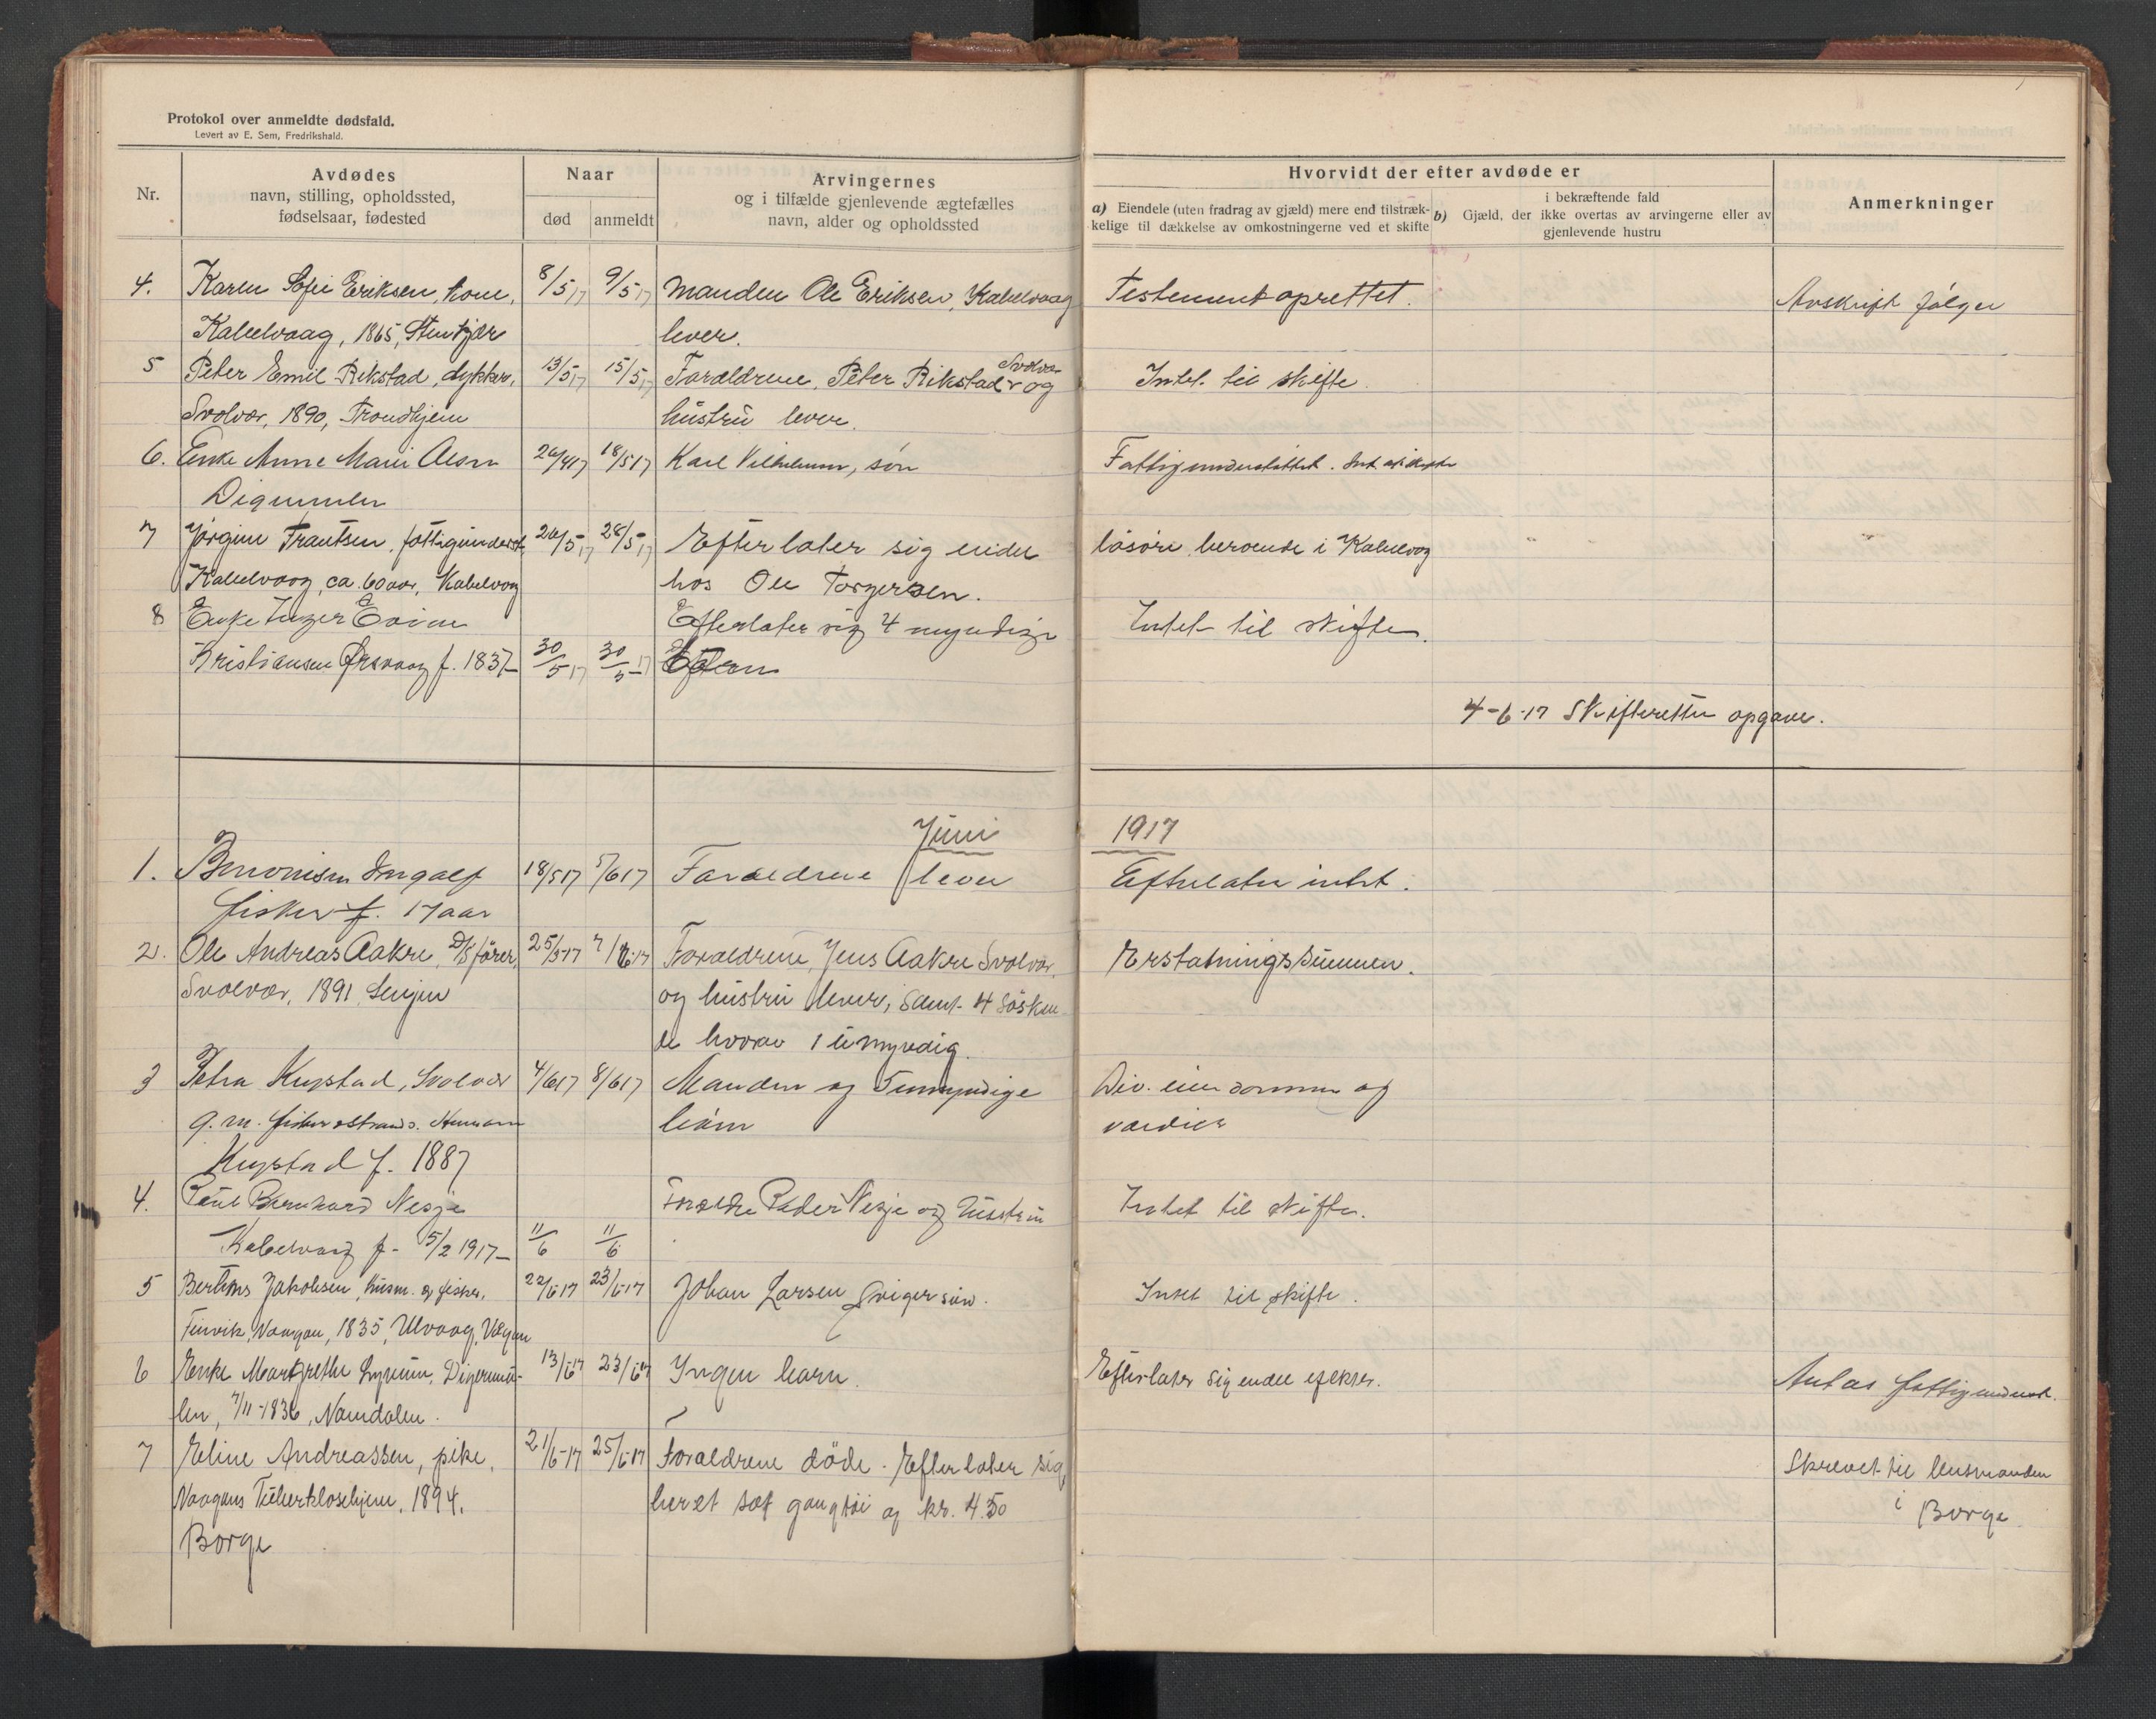 Protokol over anmeldte dødsfald.
Levert av E. Sem, Fredrikshald.
Nr.
Avdødes
navn, stilling, opholdssted,
fødselsaar, fødested
Naar
død
anmeldt
Arvingernes
og i tilfælde gjenlevende ægtefælles
navn, alder og opholdssted
Hvorvidt der efter avdøde er
a) Eiendele (uten fradrag av gjæld) mere end tilstræk-
kelige til dækkelse av omkostningerne ved et skifte
i bekræftende fald
b) Gjæld, der ikke overtas av arvingerne eller av
gjenlevende hustru
Anmerkninger
4. Karen Sofie Eriksen, kone, 8/5 17 9/5 17 Manden Ole Eriksen, Kabelvaag Testement oprettet. Avskrift følger
Kabelvaag, 1865, Stenkjær lever.
5 Peter Emil Rikstad, dykker, 13/5 17 15/5 17 Forældrene, Peter Rikstad Svolvær og Intet til skifte.
Svolvær, 1890, Trondhjem hustru lever.
6. Enke Anne Marie Olsen 26/4 17 18/5 17 Karl Vilhelmsen, søn Fattigunderstøttet. Intet til skifte
Digermulen
7 Jørgine Frantsen, fattigunderst. 26/5 17 28/5 17 Efterlater sig endel løsøre beroende i Kabelvog " "
Kabelvaag, ca. 60 aar, Kabelvog hos Ole Torgersen.
8 Enke Inger Evine Efterlater sig 4 myndige Intet til skifte.
Kristiansen Ørsvaag f. 1837- 30/5 17 30/5-17
4-6-17 Skifteretten opgave.
Juni 1917
1. Benonisen Ingolf 18/5 17 5/6 17 Forældrene lever Efterlater intet.
fisker f. 17 aar
2. Ole Andreas Aakre, D/S fører, 25/5-17 7/6-17 Forældrene, Jens Aakre Svolvær, Erstatningssummen.
Svolvær, 1891, Senjen og hustru lever, samt 4 søsken
de hvorav 1 umyndig.
3 Petra Kystad, Svolvær 4/6 17 8/6 17 Manden og 5 umyndige Div. eiendommer og
g. m. fisker Kystad f. 1887 børn værdier
4. Paul Bernhard Nesje Forældre Peder Nesje og hustru Intet til skifte.
Kabelvaag f. 5/2 1917- 11/6 11/6
5 Bertinus Jakobsen, husm. og fisker, 22/6-17 23/6-17 Johan Larsen Svigersøn. Intet til skifte.
Finvik, Vaagan, 1835, Ulvaag, Vågan
6 Enke Margrethe Lynum, Digermu- 13/6-17 23/6-17 Ingen barn. Efterlater sig endel efekter. Antas fattigunderst.
len, 7/11-1836, Namdalen.
7 Eline Andreassen, pike, 21/6-17 25/6-17 Forældrene døde. Efterlater sig Skrevet til lensmanden
Vaagans Tuberklosehjem, 1894, her et sæt gangtøi og kr. 4.50 i Borge
Borge